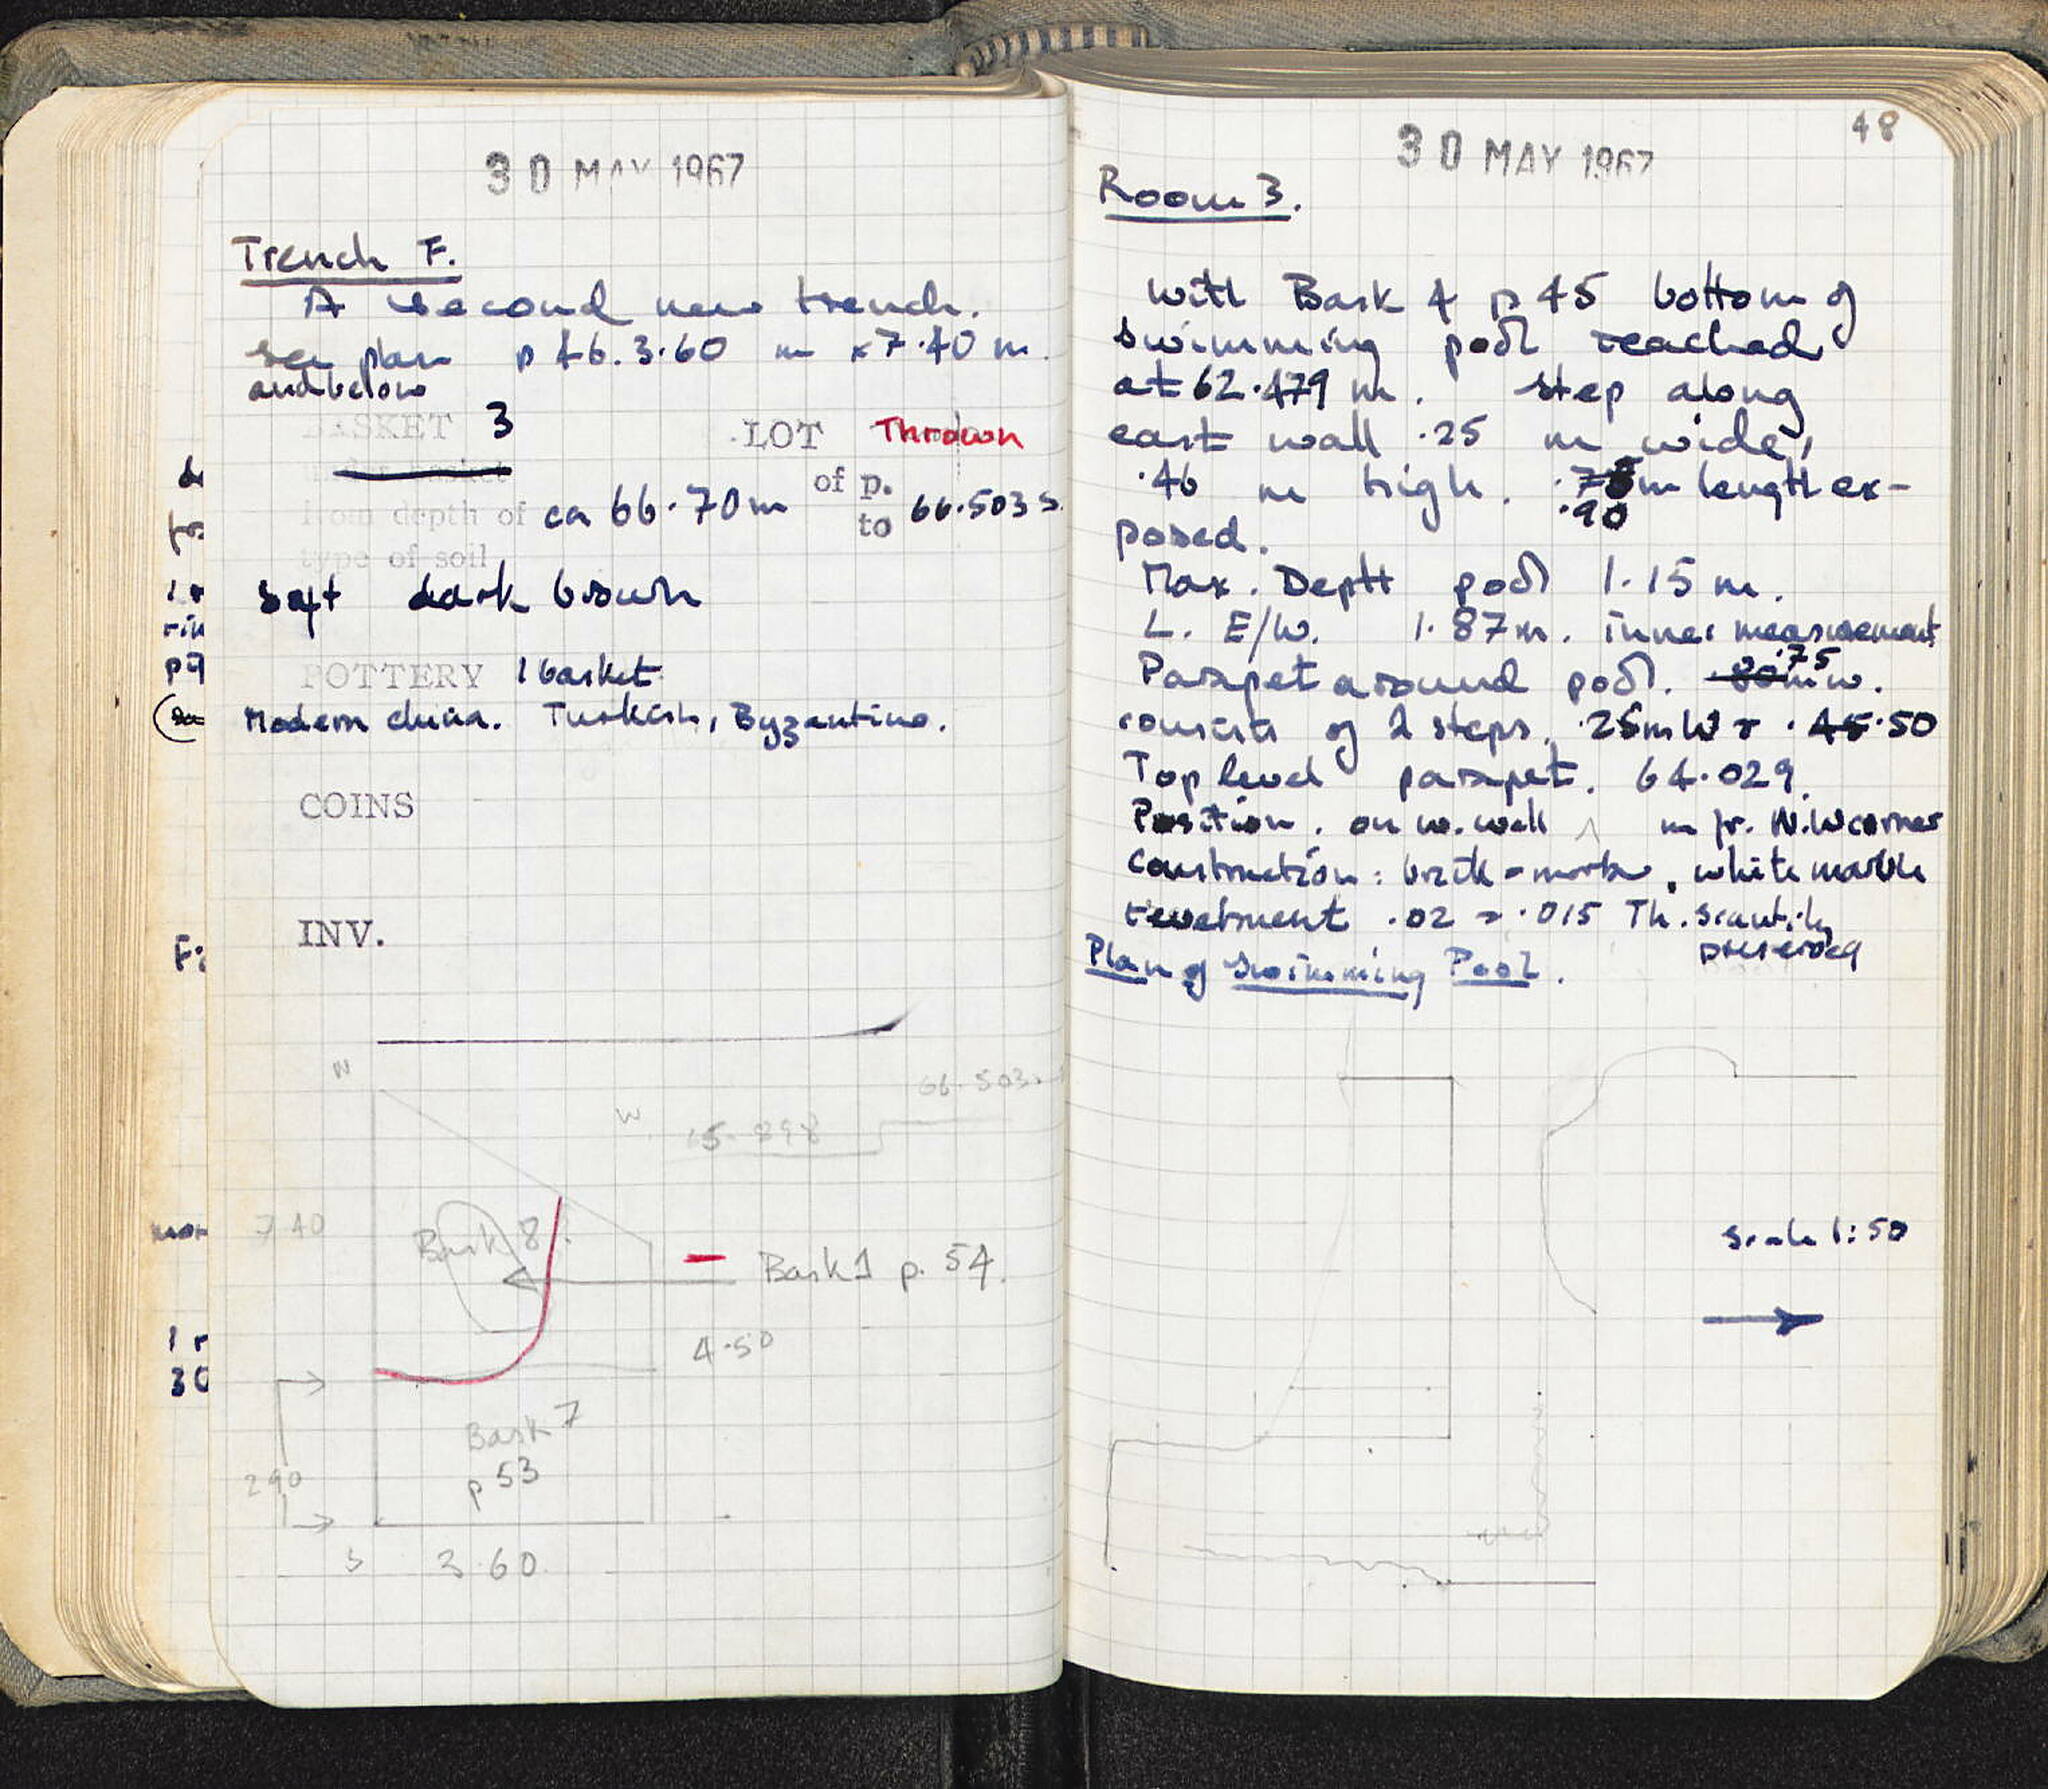 30 MAY 1967
Trench F.
A second new trench.
see plan p 46. 3.60 m x 7.40 m.
and below
BASKET 3 LOT Thrown
under basket of p.
from depth of ca 66.70 m to 66.503 S.
type of soil
soft dark brown
POTTERY 1 basket
Modern china. Turkish, Byzantine.
COINS
INV.
N
W.
66.503
7 40
Bask 8
Bask 1 p. 54.
4.50
Bask 7
p 53
290
S 3.60
48
30 MAY 1967
Room 3.
with Bask 4 p 45 bottom of
swimming pool reached
at 62.479 m. step along
east wall .25 m wide,
.46 m high. m length ex-
.90
posed.
Max. Depth pool 1.15 m.
L. E/W. 1.87 m. inner measurement
Parapet around pool. .80 .75 m w.
consists of 2 steps. .25 m W x .45 .50
Top level parapet. 64.029.
Position. on w. wall m fr. N.W corner
Construction: brick - mortar, white marble
revetment .02 - .015 Th. scantily
preserved
Plan of Swimming Pool.
Scale 1:50